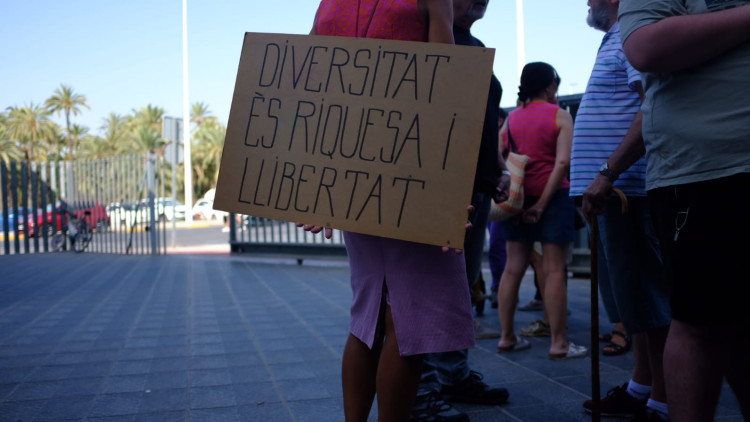 DIVERSITAT
ÈS RIQUESA i
LLIBERTAT